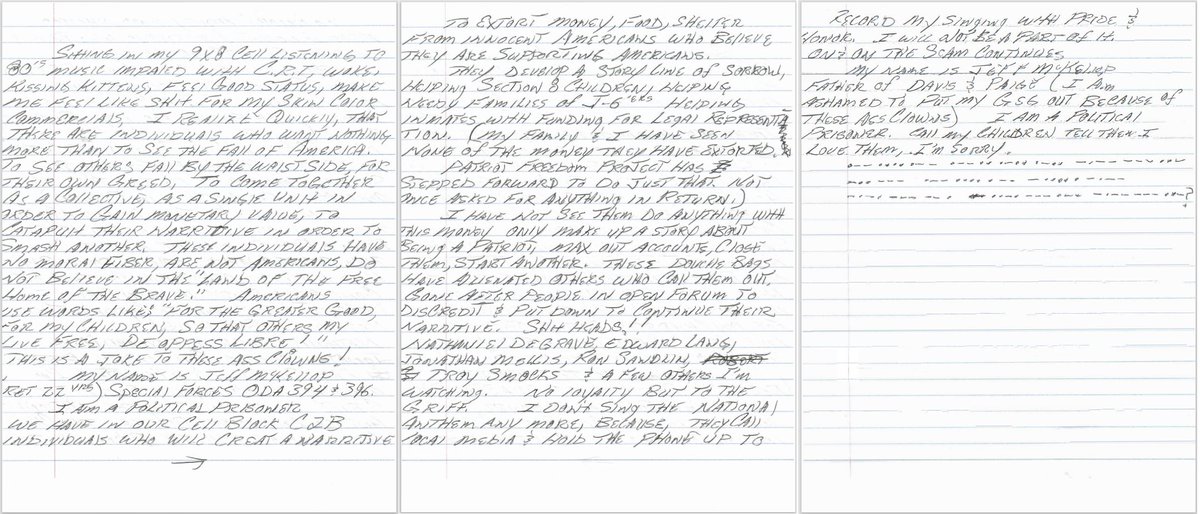 Sitting in my 9x8 cell listening to
80's music impaied with C.R.T woke,
kissing kittens, feel good status, make
me feel like shit for my skin color
commercials. I realize quickly, that
there are individuals who want nothing
more than to see the fall of America.
To see others fall by the waist side, for
their own greed, to come together
as a collective, as a single unit in
order to gain monetary value, to
catapult their narritive in order to
smash another. These individuals have
no moral fiber, are not Americans, do
not believe in the "Land of the Free
Home of the Brave." Americans
use words like: "For the greater good,
for my children, so that others my
live free, De Oppess Libre!"
This is a joke to these ass clowns!
My name is Jeff McKellop
Ret 22 yrs) Special Forces ODA 394 & 396.
I am a political prisoner.
We have in our cell block C2B
individuals who will creat a narritive
To extort money, food, shelter
from innocent Americans who believe
they are supporting Americans.
They develop a story line of sorrow,
helping Section 8 children, helping
needy families of J-6'ers helping
inmates with funding for legal representa
tion. (My family & I have seen
none of the money they have extorted.
Patriot Freedom Project has
stepped forward to do just that. Not
once asked for anything in return.)
I have not see them do anything with
this money only make up a story about
being a patriot, max out accounts, close
them, start another. These douche bags
have alienated others who call them out,
gone after people in open forum to
discredit & put down to continue their
narritive. Shit heads!!
Nathaniel DeGrave, Edward Lang,
Jonathan Mellis, Ron Sandlin,
Troy Smocks & a few others I'm
watching. No loyalty but to the
griff. I don't sing the National
Anthem any more, because, they call
local media & hold the phone up to
record my singing with pride &
honor. I will not be a part of it.
On & on the scam continues
My name is Jeff McKellop
father of Davis & Paige (I am
ashamed to put my GSG out because of
these ass clowns) I am a political
prisoner. Call my children tell them I
love them, I'm sorry.